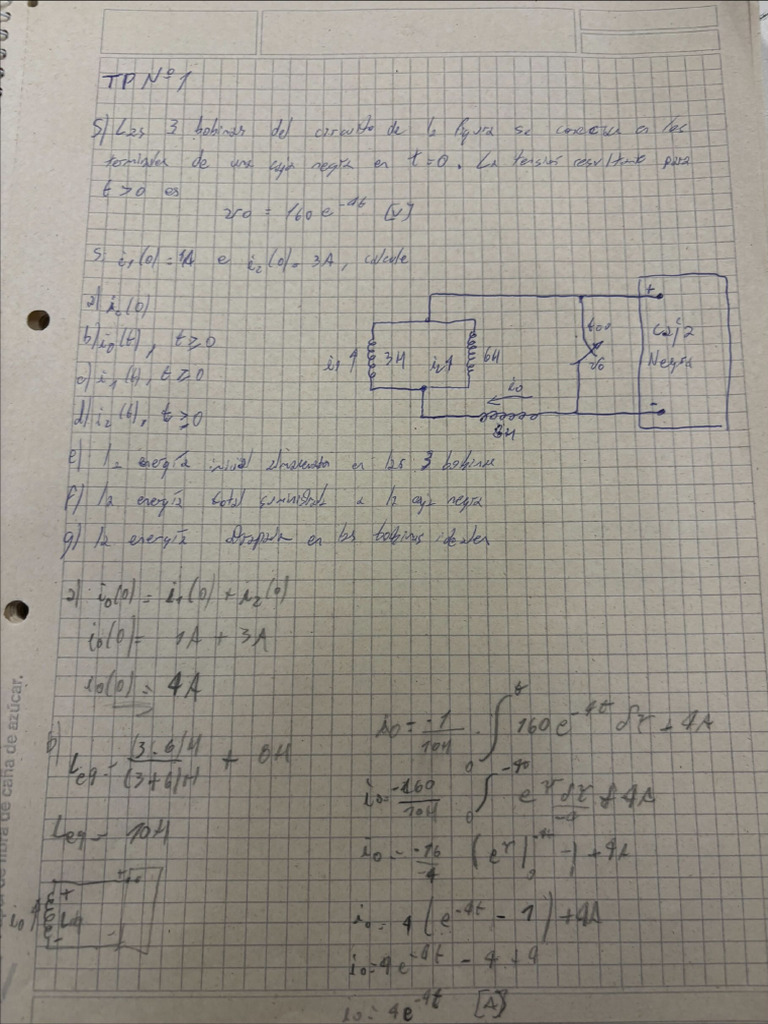 TP Nº 1
5) Las 3 bobinas del circuito de la figura se conectan en los
terminales de una caja negra en t=0. La tensión resultante para
t > 0 es
v0 = 160 e^-4t [V]
Si i1(0) = 1A e i2(0) = 3A, calcule
a) i0(0)
b) i0(t), t ≥ 0
c) i1(t), t ≥ 0
d) i2(t), t ≥ 0
i1
3H
i2
6H
t=0
v0
+
Caja
Negra
-
i0
8H
e) la energía inicial almacenada en las 3 bobinas
f) la energía total suministrada a la caja negra
g) la energía en las bobinas ideales
a) i0(0) = i1(0) + i2(0)
i0(0) = 1A + 3A
i0(0) = 4A
b)
Leq = (3.6)H / (3+6)H + 8H
Leq = 10H
i0
+
Leq
-
i0 = -1/10H . ∫0^t 160 e^-4t dτ + 4A
i0 = -160/10H ∫0^-4t e^τ dτ/-4 + 4A
i0 = -16/-4 (e^τ |0^-4t - 1 + 4A
i0 = 4 (e^-4t - 1) + 4A
i0 = 4e^-4t - 4 + 4
i0 = 4e^-4t [A]